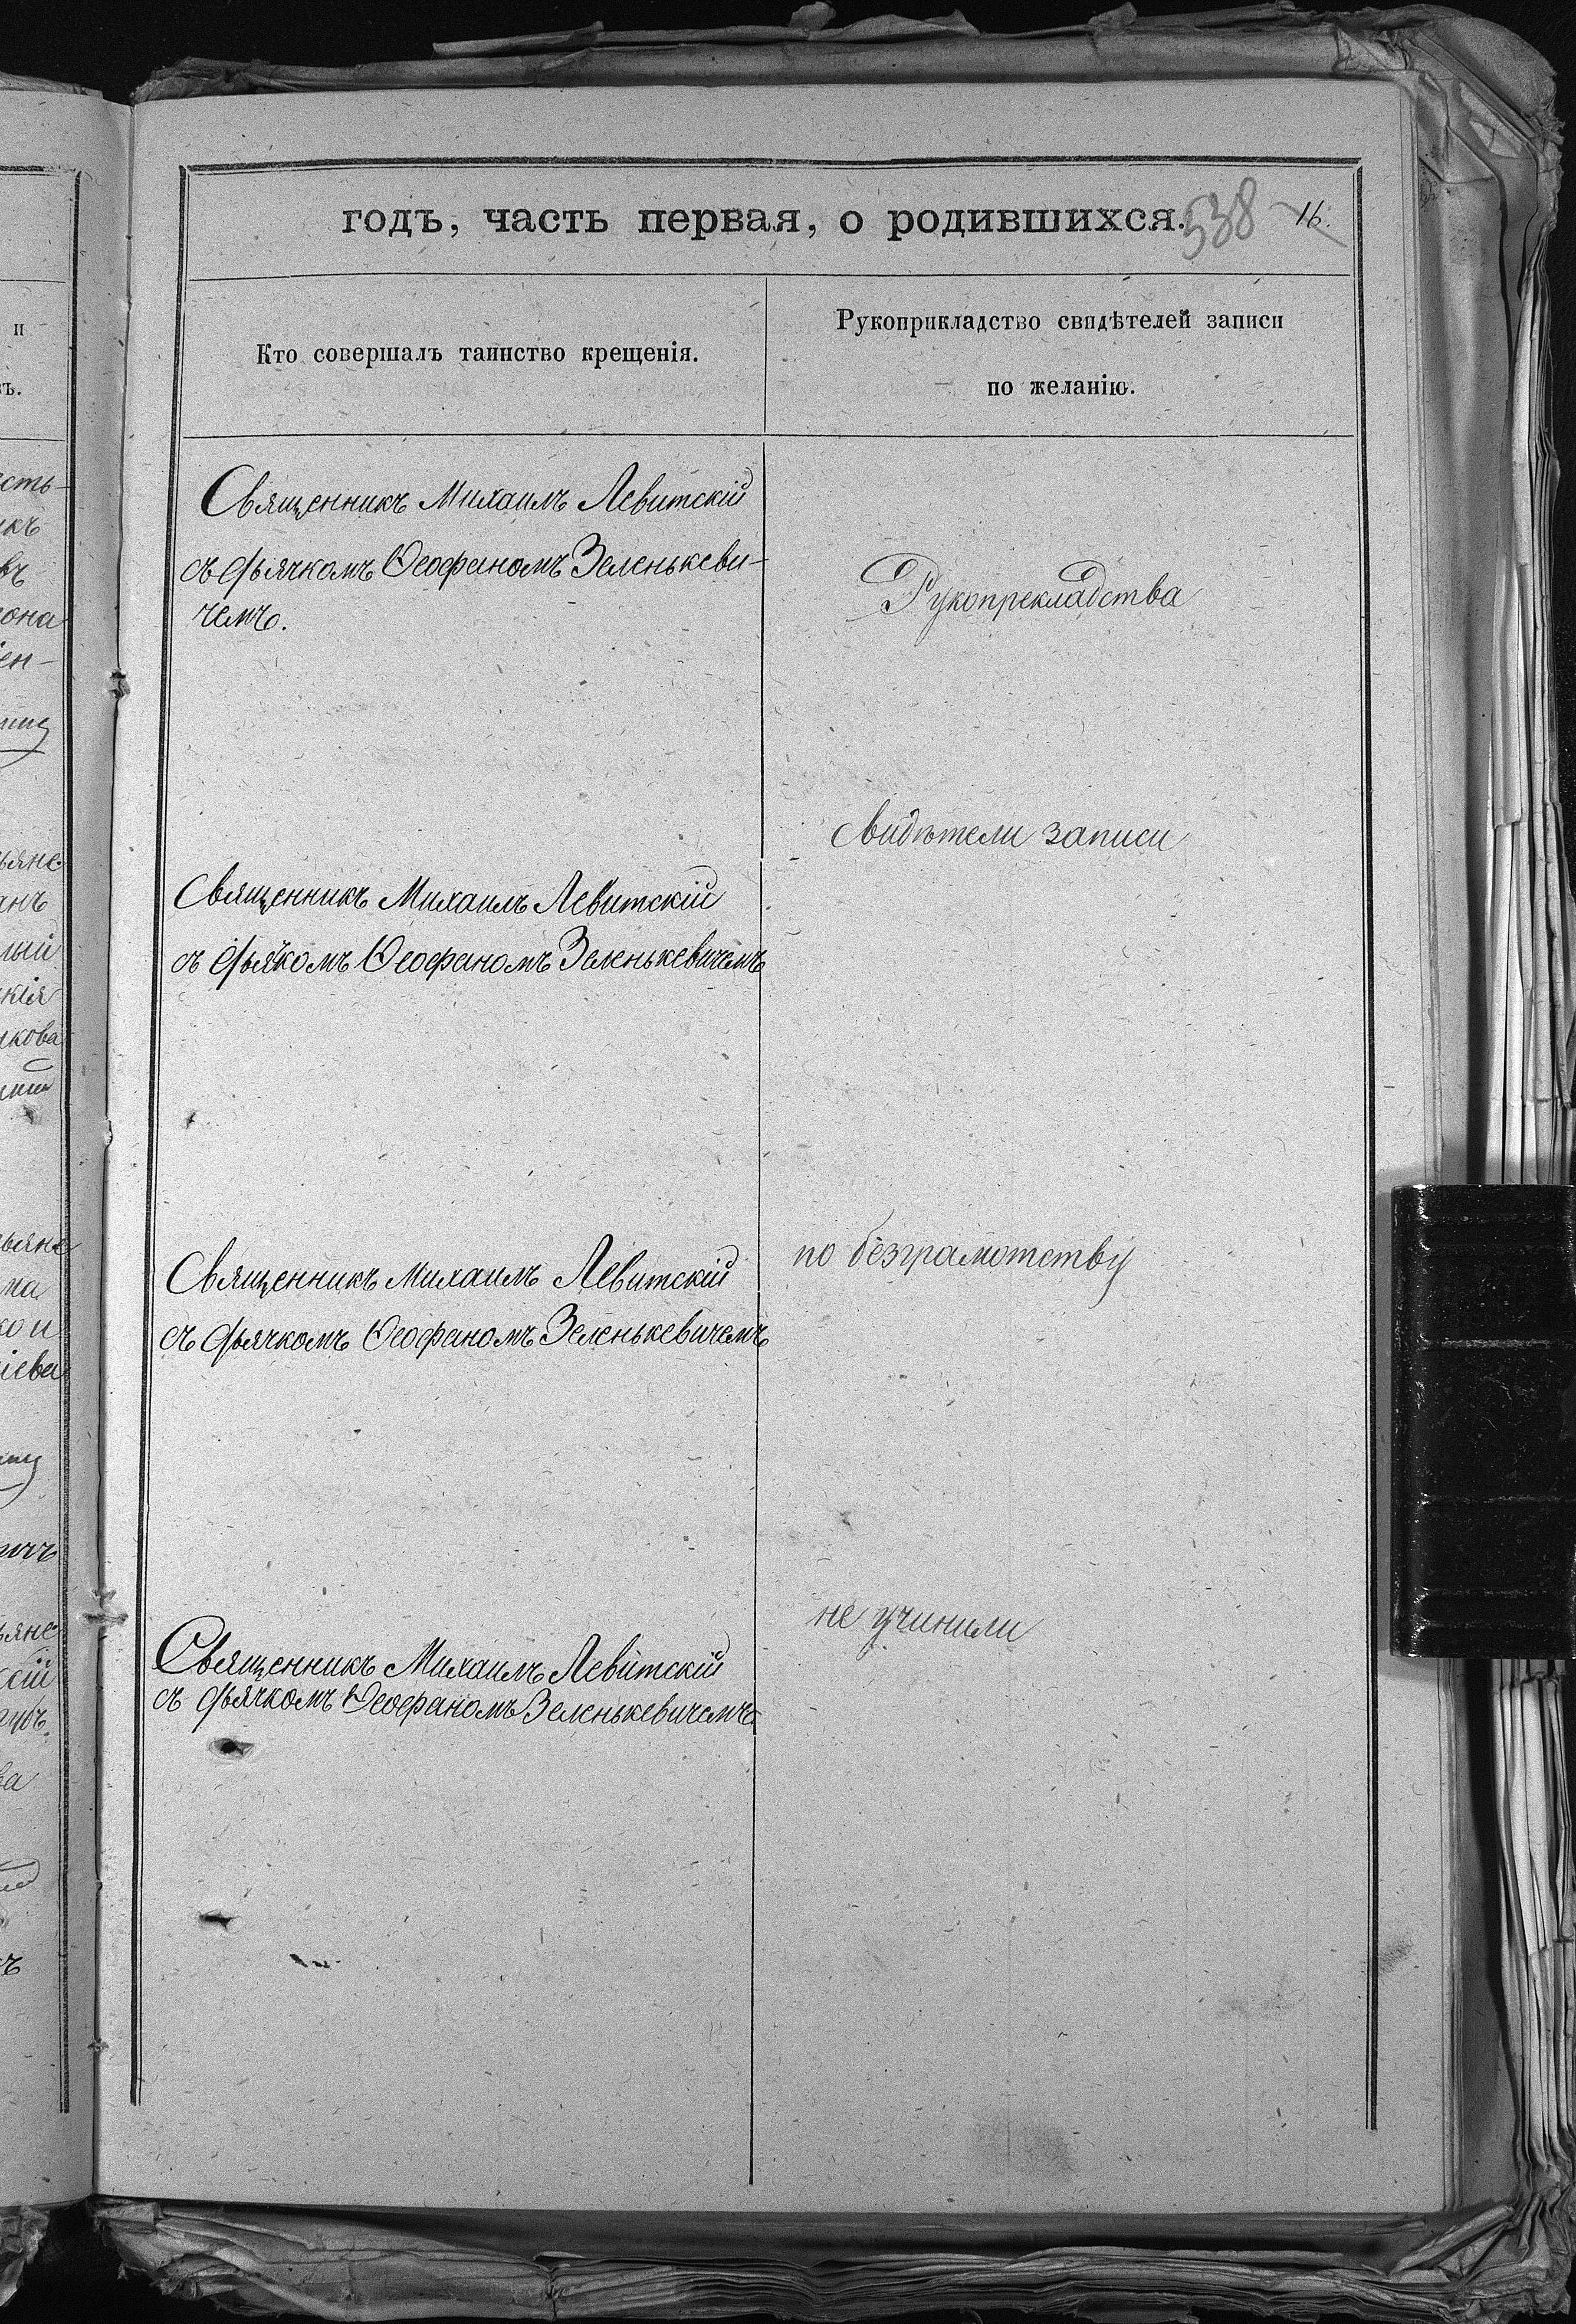 годъ, часть первая, о родившихся. 538 16.
Кто совершалъ таинство крещенія.
Рукоприкладство свидѣтелей записи
по желанію.
Священникъ Михаилъ Левитскій
съ дьячкомъ Ѳеофаномъ Зеленькеви-
чемъ.
Рукопрекладства
свидѣтели записи
Священникъ Михаилъ Левитскій
съ дьякомъ Ѳеофаномъ Зеленькевичемъ
по безграмотству
Священникъ Михаилъ Левитскій
съ дьячкомъ Ѳеофаномъ Зеленькевичемъ
не учинили
Священникъ Михаилъ Левитскій
съ дьячкомъ Ѳеофаномъ Зеленькевичемъ